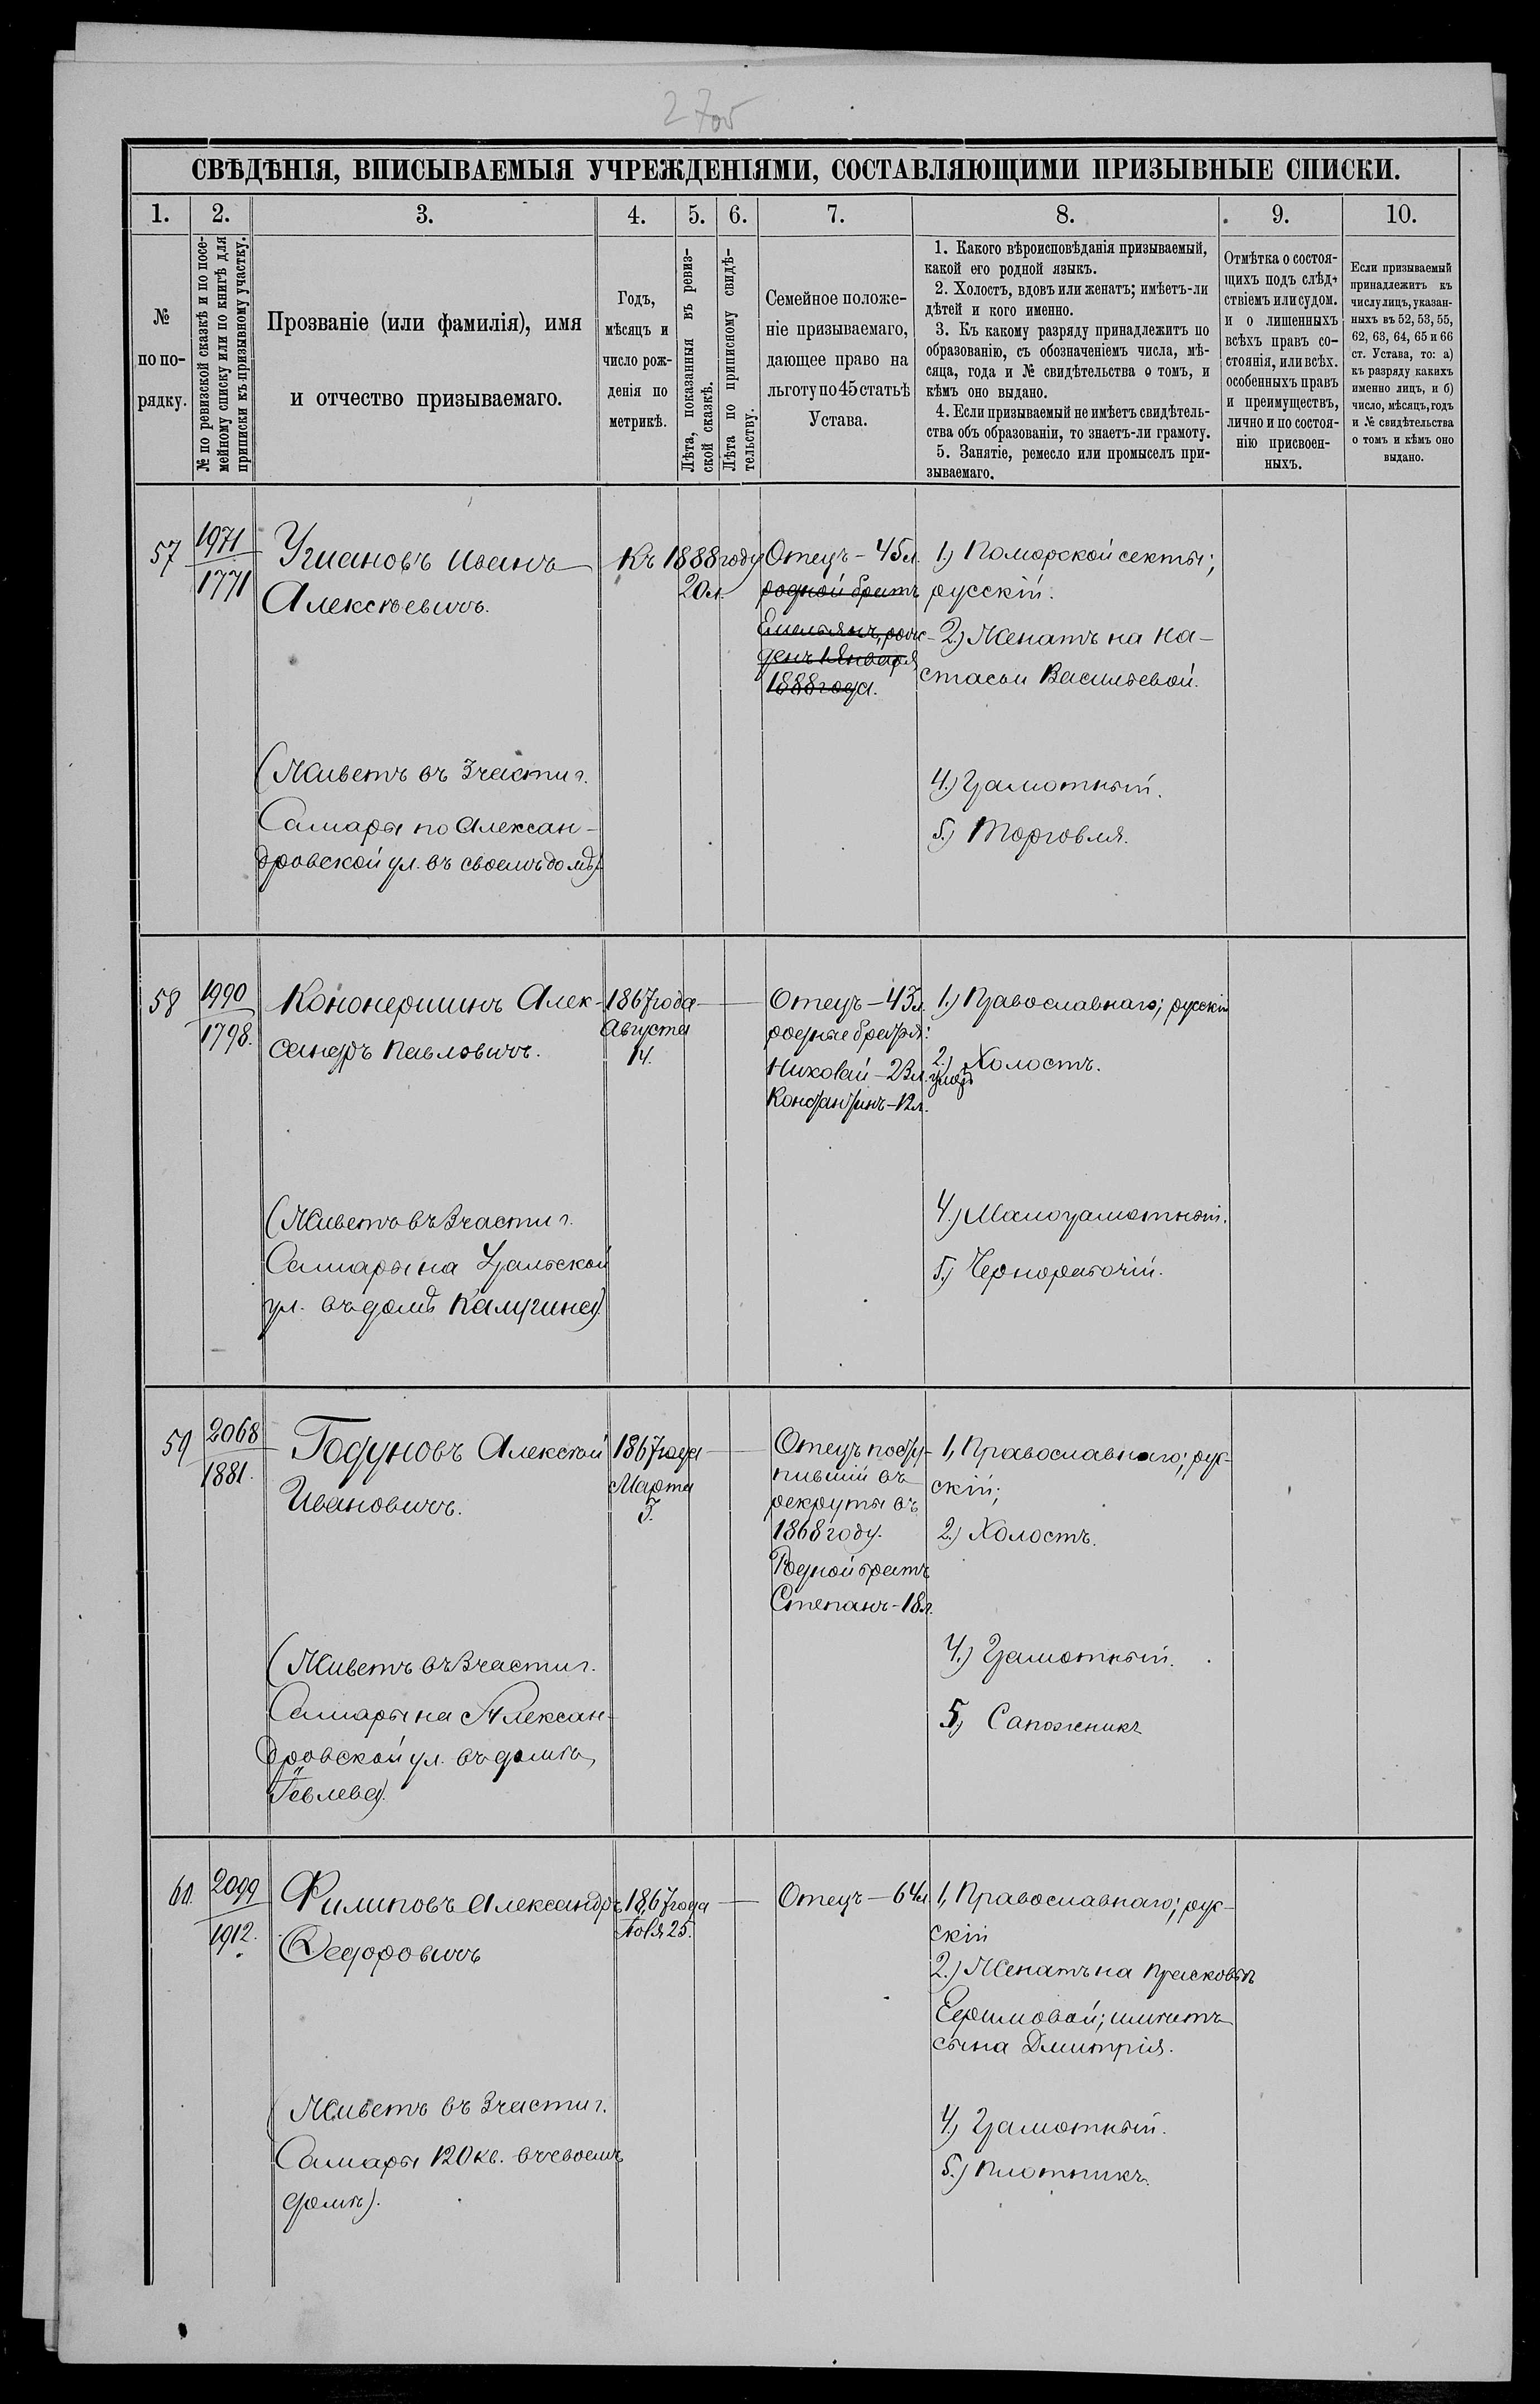 270
СВѢДѢНІЯ, ВПИСЫВАЕМЫЯ УЧРЕЖДЕНІЯМИ, СОСТАВЛЯЮЩИМИ ПРИЗЫВНЫЕ СПИСКИ.
1. 2. 3. 4. 5. 6. 7. 8. 9. 10.
№
по по-
рядку.
№ по ревизской сказкѣ и по посе-
мейному списку или по книгѣ для
приписки къ призывному участку.
Прозваніе (или фамилія), имя
и отчество призываемаго.
Годъ,
мѣсяцъ и
число рож-
денія по
метрикѣ.
Лѣта, показанныя въ ревиз-
ской сказкѣ.
Лѣта по приписному свидѣ-
тельству.
Семейное положе-
ніе призываемаго,
дающее право на
льготу по 45 статьѣ
Устава.
1. Какого вѣроисповѣданія призываемый,
какой его родной языкъ.
2. Холостъ, вдовъ или женатъ; имѣетъ-ли
дѣтей и кого именно.
3. Къ какому разряду принадлежитъ по
образованію, съ обозначеніемъ числа, мѣ-
сяца, года и № свидѣтельства о томъ, и
кѣмъ оно выдано.
4. Если призываемый не имѣетъ свидѣтель-
ства объ образованіи, то знаетъ-ли грамоту.
5. Занятіе, ремесло или промыселъ при-
зываемаго.
Отмѣтка о состоя-
щихъ подъ слѣд-
ствіемъ или судом.
и о лишенныхъ
всѣхъ правъ со-
стоянія, или всѣх.
особенныхъ правъ
и преимуществъ,
лично и по состоя-
нію присвоен-
ныхъ.
Если призываемый
принадлежитъ къ
числу лицъ, указан-
ныхъ въ 52, 53, 55,
62, 63, 64, 65 и 66
ст. Устава, то: а)
къ разряду какихъ
именно лицъ, и б)
число, мѣсяцъ, годъ
и № свидѣтельства
о томъ и кѣмъ оно
выдано.
57
1971
1771
Иванъ
Алексѣевичъ.
(Живетъ въ 3 части г.
Самары по Алексан-
дровской ул. въ своемъ домѣ)
Къ 1888 году
20 л.
Отецъ - 45 л.
родной братъ
Емельянъ, рож-
денъ 1 Января
1888 года.
1) Поморской секты;
русскій.
2) Женатъ на На-
стасьи Васильевой.
4) Грамотный.
5) Торговля.
58
1990
1798.
Алек-
сандръ Павловичъ.
(Живетъ въ 3 части г.
Самары на Уральской
ул. въ домѣ Калугина)
1867 года
Августа
14.
Отецъ - 43 л.
родные братья:
Николай - 23 л.
Константинъ - 12 л.
1.) Православнаго; русскій
2.) Холостъ.
4.) Малограмотный.
5.) Чернорабочій.
59
2068
1881.
Годуновъ Алексѣй
Ивановичъ.
(Живетъ въ 3 части г.
Самары на Алексан-
дровской ул. въ домѣ
Іевлева)
1867 года
Марта
Отецъ посту-
пившій въ
рекруты въ
1868 году.
Родной братъ
Степанъ - 18 л.
1, Православнаго; рус-
скій;
2.) Холостъ.
4.) Грамотный.
5, Сапожникъ
60.
2099
1912.
Филиповъ Александръ
Ѳедоровичъ
(Живетъ въ 3 части г.
Самары 120 кв. въ своемъ
домѣ).
1867 года
25.
Отецъ - 64 л.
1, Православнаго; рус-
скій
2.) Женатъ на Прасковьѣ
Ефимовой; имѣетъ
сына Дмитрія.
4.) Грамотный.
5.) Плотникъ.